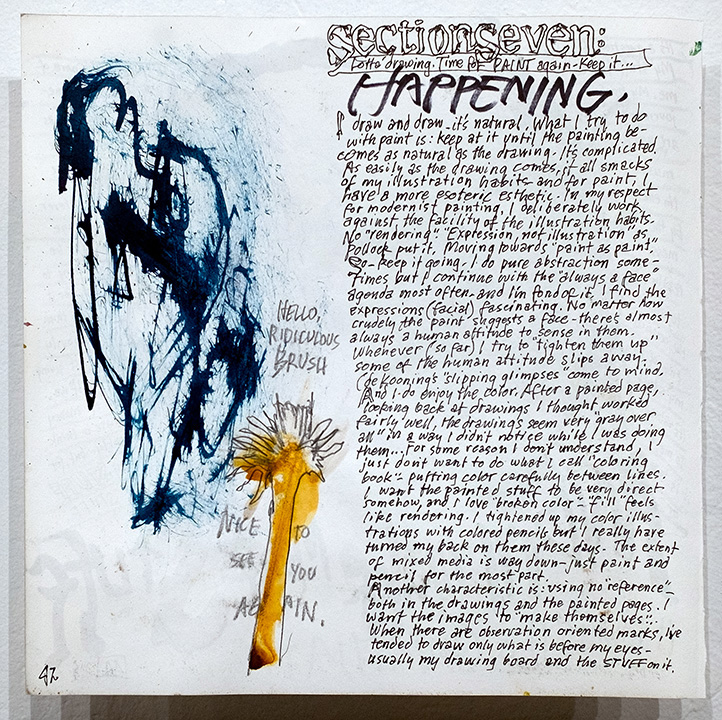 sectionseven:
Lotta drawing. Time for PAINT again - Keep it...
HAPPENING.
I draw and draw - it's natural. What I try to do
with paint is: keep at it until the painting be-
comes as natural as the drawing. It's complicated.
As easily as the drawing comes, it all smacks
of my illustration habits - and for paint, I
have a more esoteric esthetic. In my respect
for modernist painting, I deliberately work
against the facility of the illustration habits.
No "rendering". "Expression, not illustration" as
Pollock put it. Moving towards "paint as paint"
So - keep it going. I do pure abstraction some-
times but I continue with the "always a face"
agenda most often - and I'm fond of it. I find the
expressions (facial) fascinating. No matter how
crudely the paint suggests a face - there's almost
always a human attitude to sense in them.
Whenever (so far) I try to "tighten them up"
some of the human attitude slips away.
(deKooning's "slipping glimpses" come to mind.
And I do enjoy the color. After a painted page,
looking back at drawings I thought worked
fairly well, the drawings seem very "gray over
all" in a way I didn't notice while I was doing
them... For some reason I don't understand, I
just don't want to do what I call "coloring
book" - putting color carefully between lines.
I want the painted stuff to be very direct
somehow, and I love "broken color" - "fill" feels
like rendering. I tightened up my color illus-
trations with colored pencils but I really have
turned my back on them these days. The extent
of mixed media is way down - just paint and
pencil for the most part.
Another characteristic is: using no "reference" -
both in the drawings and the painted pages. I
want the images to "make themselves"..
When there are observation oriented marks, I've
tended to draw only what is before my eyes -
usually my drawing board and the STUFF on it.
HELLO,
RIDICULOUS
BRUSH
NICE TO
SEE YOU
AGAIN.
47